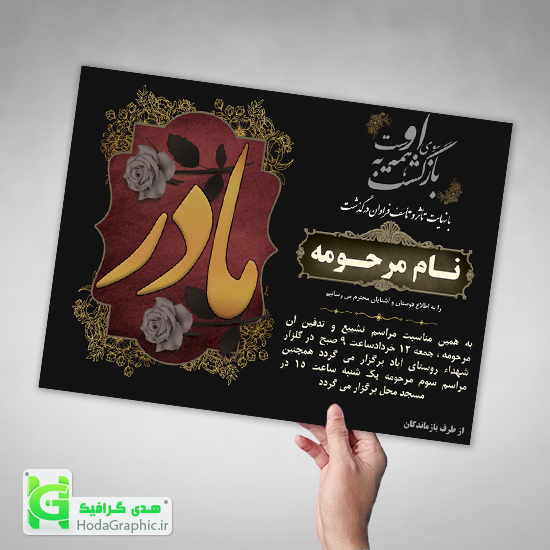 بازگشت همه بسوی اوست
با نهایت تاثر و تاسف فراوان درگذشت
نام مرحومه
را به اطلاع دوستان و آشنایان محترم می رسانیم
به همین مناسبت مراسم تشییع و تدفین آن
مرحومه ، جمعه ۱۲ خردادساعت ۹ صبح در گلزار
شهداء روستای آباد برگزار می گردد همچنین
مراسم سوم مرحومه یک شنبه ساعت ۱۵ در
مسجد محل برگزار می گردد
از طرف بازماندگان
مادر
هدی گرافیک
HodaGraphic.ir